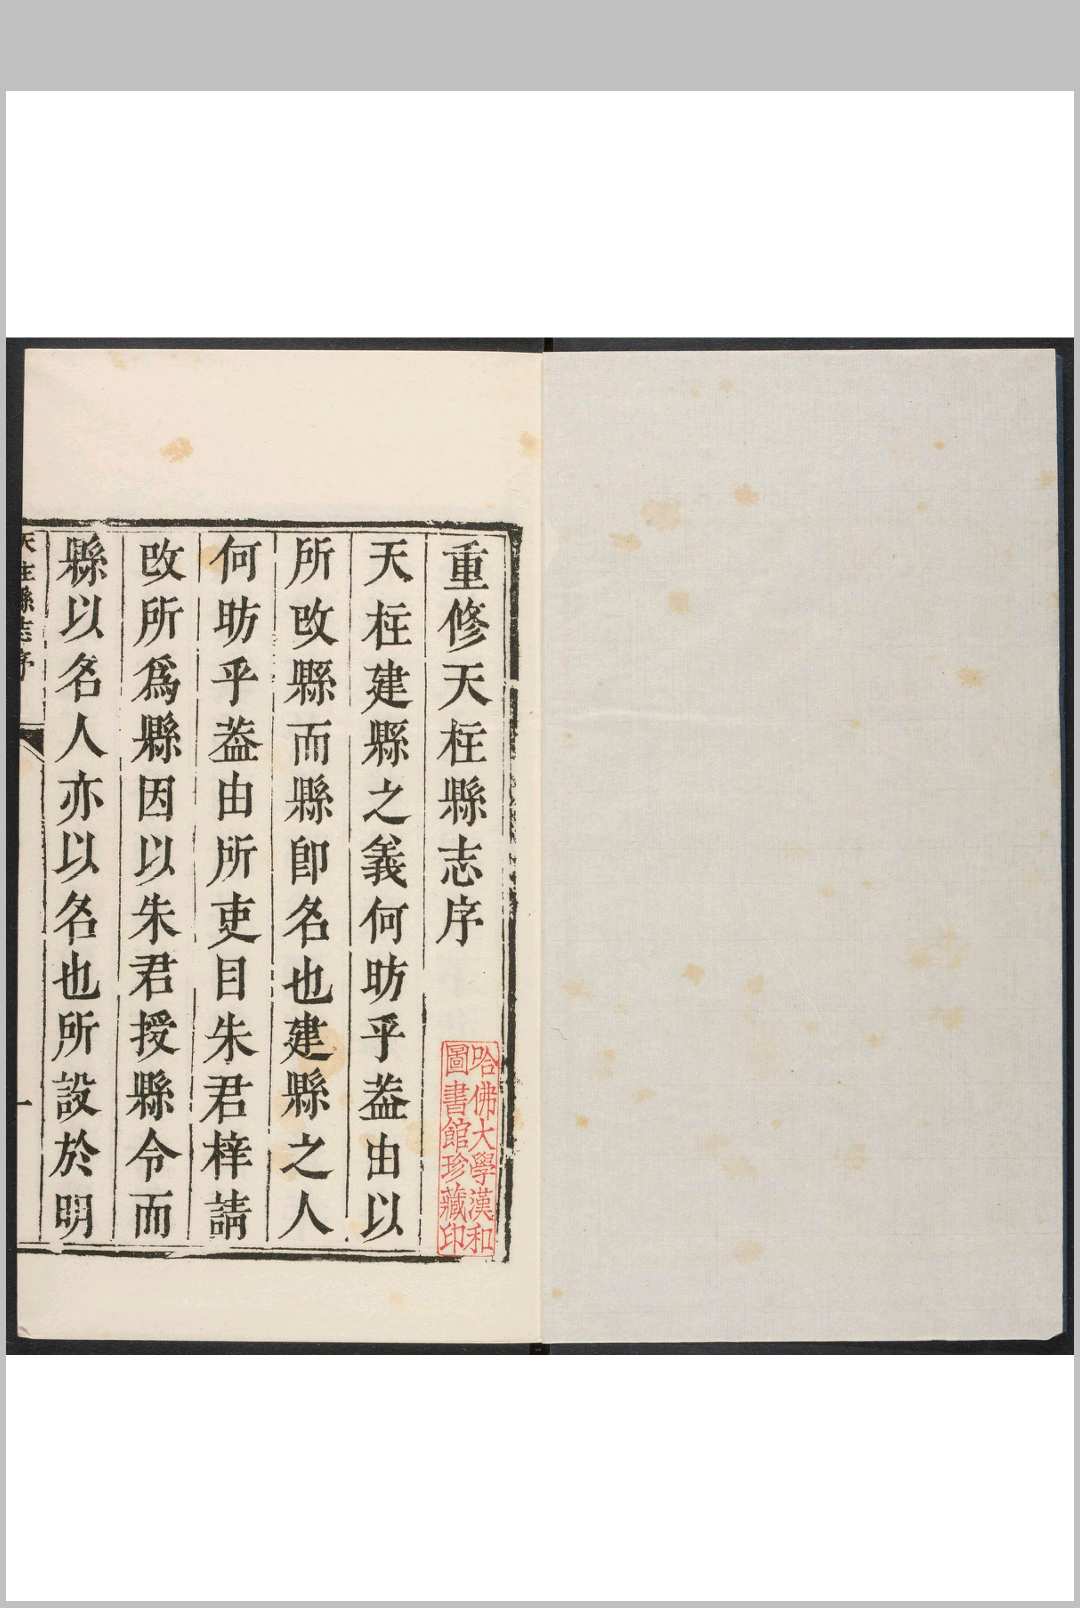 重修天柱縣志序
天柱建縣之義何昉乎葢由以
所改縣而縣卽名也建縣之人
何昉乎葢由所吏目朱君梓請
改所爲縣因以朱君授縣令而
縣以名人亦以名也所設於明
天柱縣志序
一
哈佛大學漢和
圖書館珍藏印